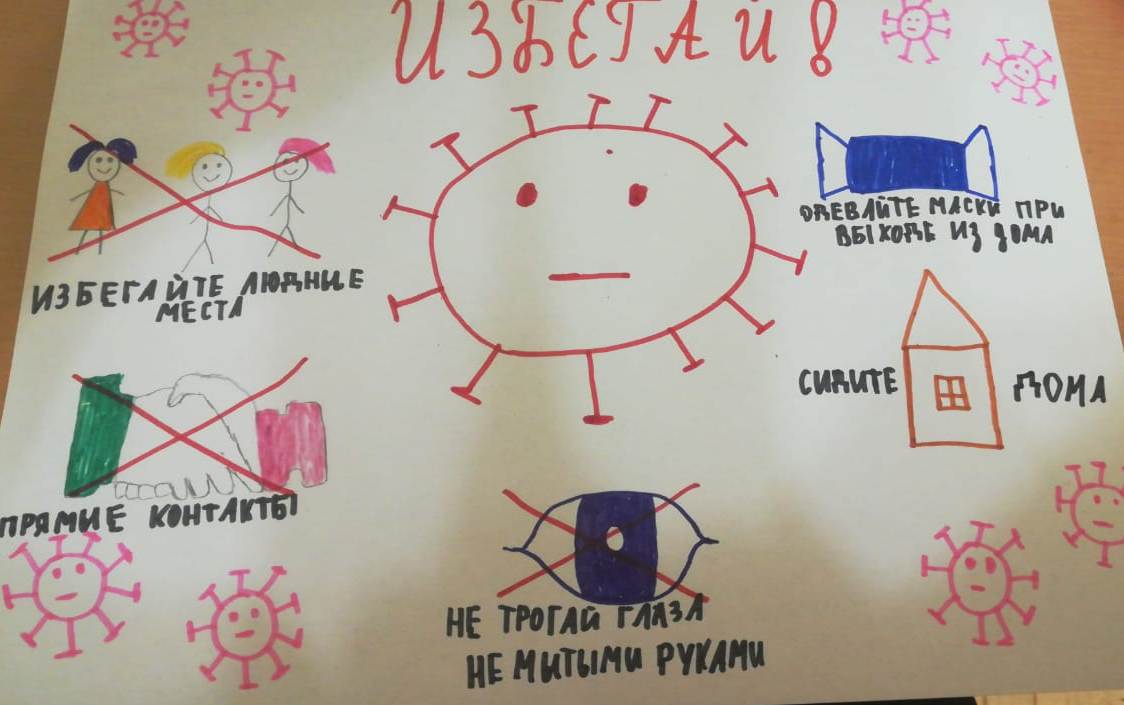 ИЗБЕГАЙ!
ИЗБЕГАЙТЕ ЛЮДНЫЕ
МЕСТА
ОДЕВАЙТЕ МАСКИ ПРИ
ВЫХОДЕ ИЗ ДОМА
СИДИТЕ ДОМА
ПРЯМЫЕ КОНТАКТЫ
НЕ ТРОГАЙ ГЛАЗА
НЕ МИТЫМИ РУКАМИ